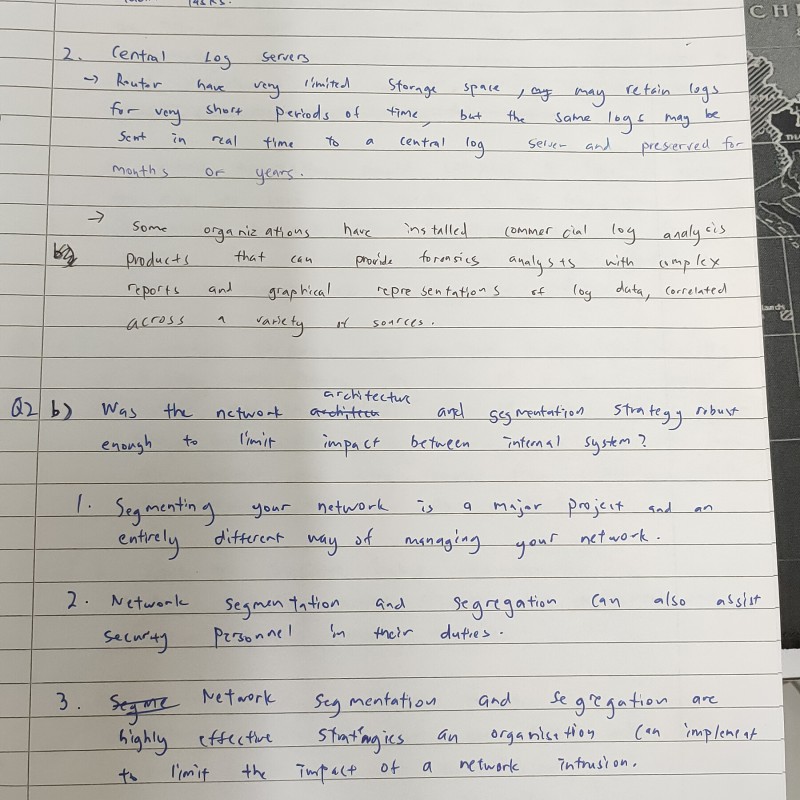 2. Central Log servers
→ Router have very limited storage space, may retain logs
for very short periods of time, but the same logs may be
sent in real time to a central log server and preserved for
months or years.
→ Some organizations have installed commercial log analysis
products that can provide forensics analysts with complex
reports and graphical representations of log data, correlated
across a variety of sources.
Q2 b) Was the network architecture and segmentation strategy robust
enough to limit impact between internal system?
1. Segmenting your network is a major project and an
entirely different way of managing your network.
2. Network segmentation and segregation can also assist
security personnel in their duties.
3. Network segmentation and segregation are
highly effective strategies an organisation can implement
to limit the impact of a network intrusion.
CHI